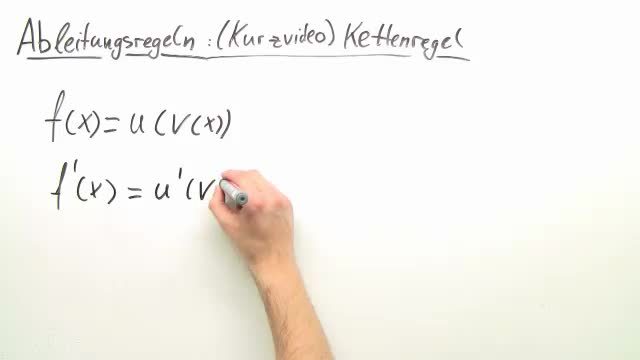 Ableitungsregeln : (Kurzvideo) Kettenregel
f(x) = u (v(x))
f'(x) = u'(v